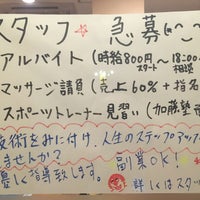 スタッフ☆急募(^-^
アルバイト(時給800円スタート〜18:00相談
マッサージ請負(売上60%+指名
スポーツトレーナー見習い(加藤塾
技術をみに付け、人生のステップアップ
ませんか?
優しく指導致します。副業OK!
詳しくはスタ